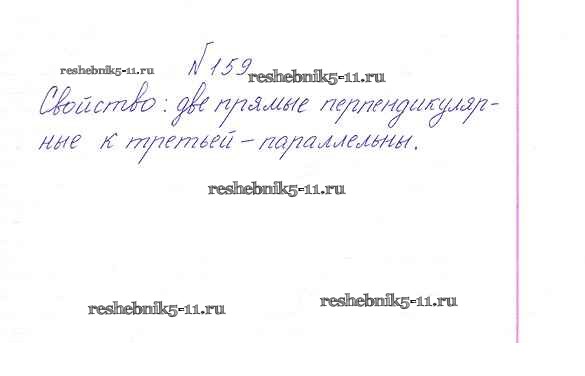 №159
reshebnik5-11.ru
reshebnik5-11.ru
Свойство: две прямые перпендикуляр-
ные к третьей – параллельны.
reshebnik5-11.ru
reshebnik5-11.ru
reshebnik5-11.ru